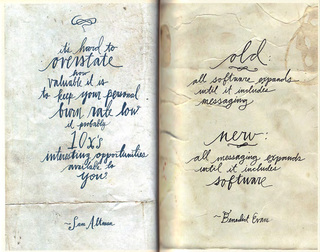 it's hard to
overstate
how
valuable it is
to keep your personal
burn rate low
it probably
10x's
interesting opportunities
available to
you
~Sam Altman
old:
all software expands
until it includes
messaging
new:
all messaging expands
until it includes
software
~Benedict Evans